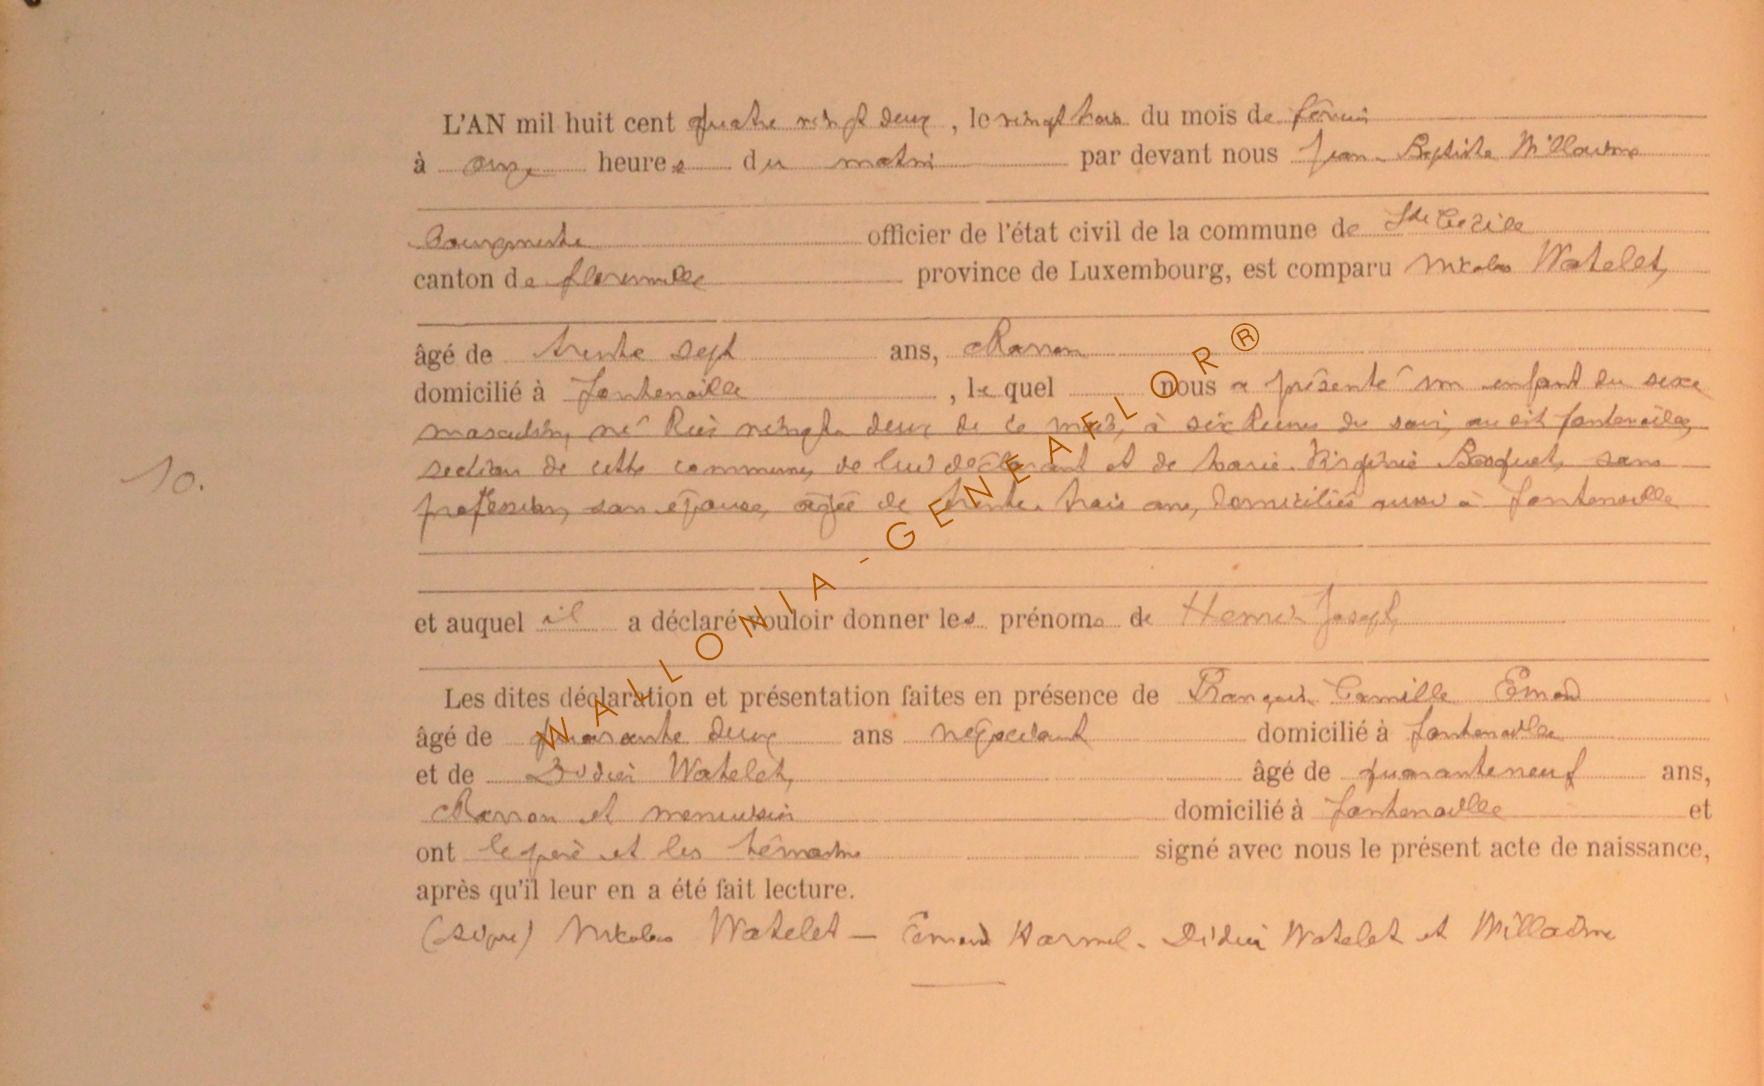 L'AN mil huit cent quatre vingt deux, le vingt trois du mois de février
à onze heures du matin par devant nous Jean-Baptiste Willaime
Bourgmestre officier de l'état civil de la commune de Ste Cécile
canton de florenville province de Luxembourg, est comparu Nicolas Watelet,
âgé de trente sept ans, charron
domicilié à fontenoille, le quel nous a présenté un enfant du sexe
masculin, né hier vingt deux de ce mois, à six heures du soir, au dit fontenoille,
section de cette commune, de lui déclarant et de Marie Virginie Bosquet, sans
profession, son épouse, agée de trente trois ans, domiciliés aussi à fontenoille
10.
et auquel il a déclaré vouloir donner les prénoms de Henri Joseph
Les dites déclaration et présentation faites en présence de François Camille Emond
âgé de quarante deux ans négociant domicilié à fontenoille
et de Didier Watelet, âgé de quarante neuf ans,
charron et menuisier domicilié à fontenoille et
ont le père et les témoins signé avec nous le présent acte de naissance,
après qu'il leur en a été fait lecture.
(signé) Nicolas Watelet — Emond Didier Watelet et Willaime
WALLONIA-GENEAFLOR®